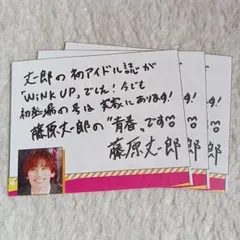 丈一郎の初アイドル誌が
「WiNK UP」でした!今でも
初登場の号は実家にあります!
藤原丈一郎の"青春"です
藤原丈一郎